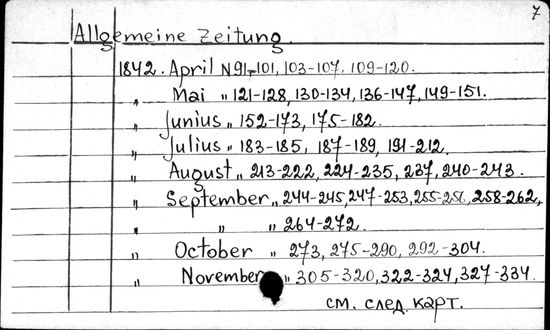 7
Allgemeine Zeitung.
1842. April N 91-101, 103-107, 109-120.
„ Mai „ 121-128, 130-134, 136-147, 149-151.
„ Junius „ 152-173, 175-182.
„ Julius „ 183-185, 187-189, 191-212.
„ August „ 213-222, 224-235, 237, 240-243.
„ September „ 244-245, 247-253, 255-256, 258-262,
„ „ „ 264-272.
„ October „ 273, 275-290, 292-304.
„ November „ 305-320, 322-324, 327-334.
см. след. карт.